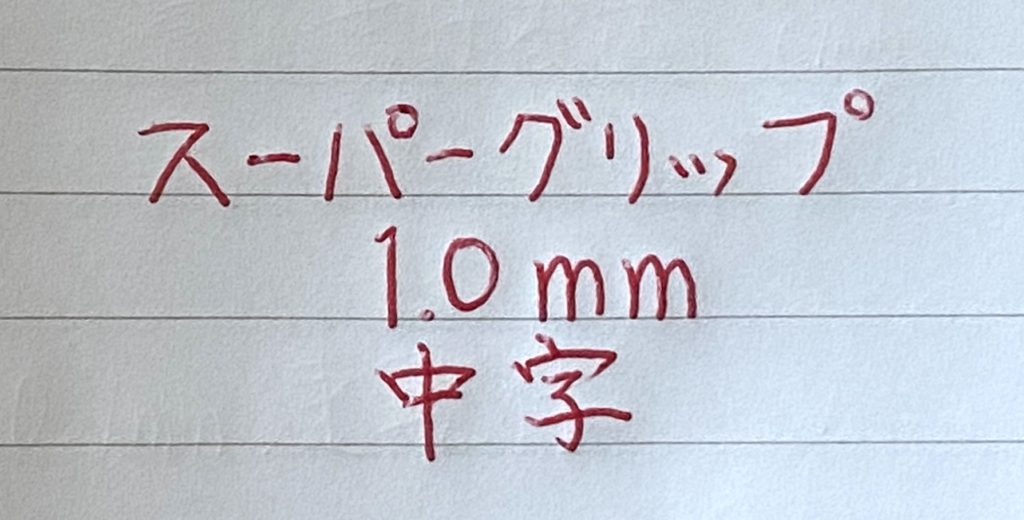 スーパーグリップ
1.0mm
中字